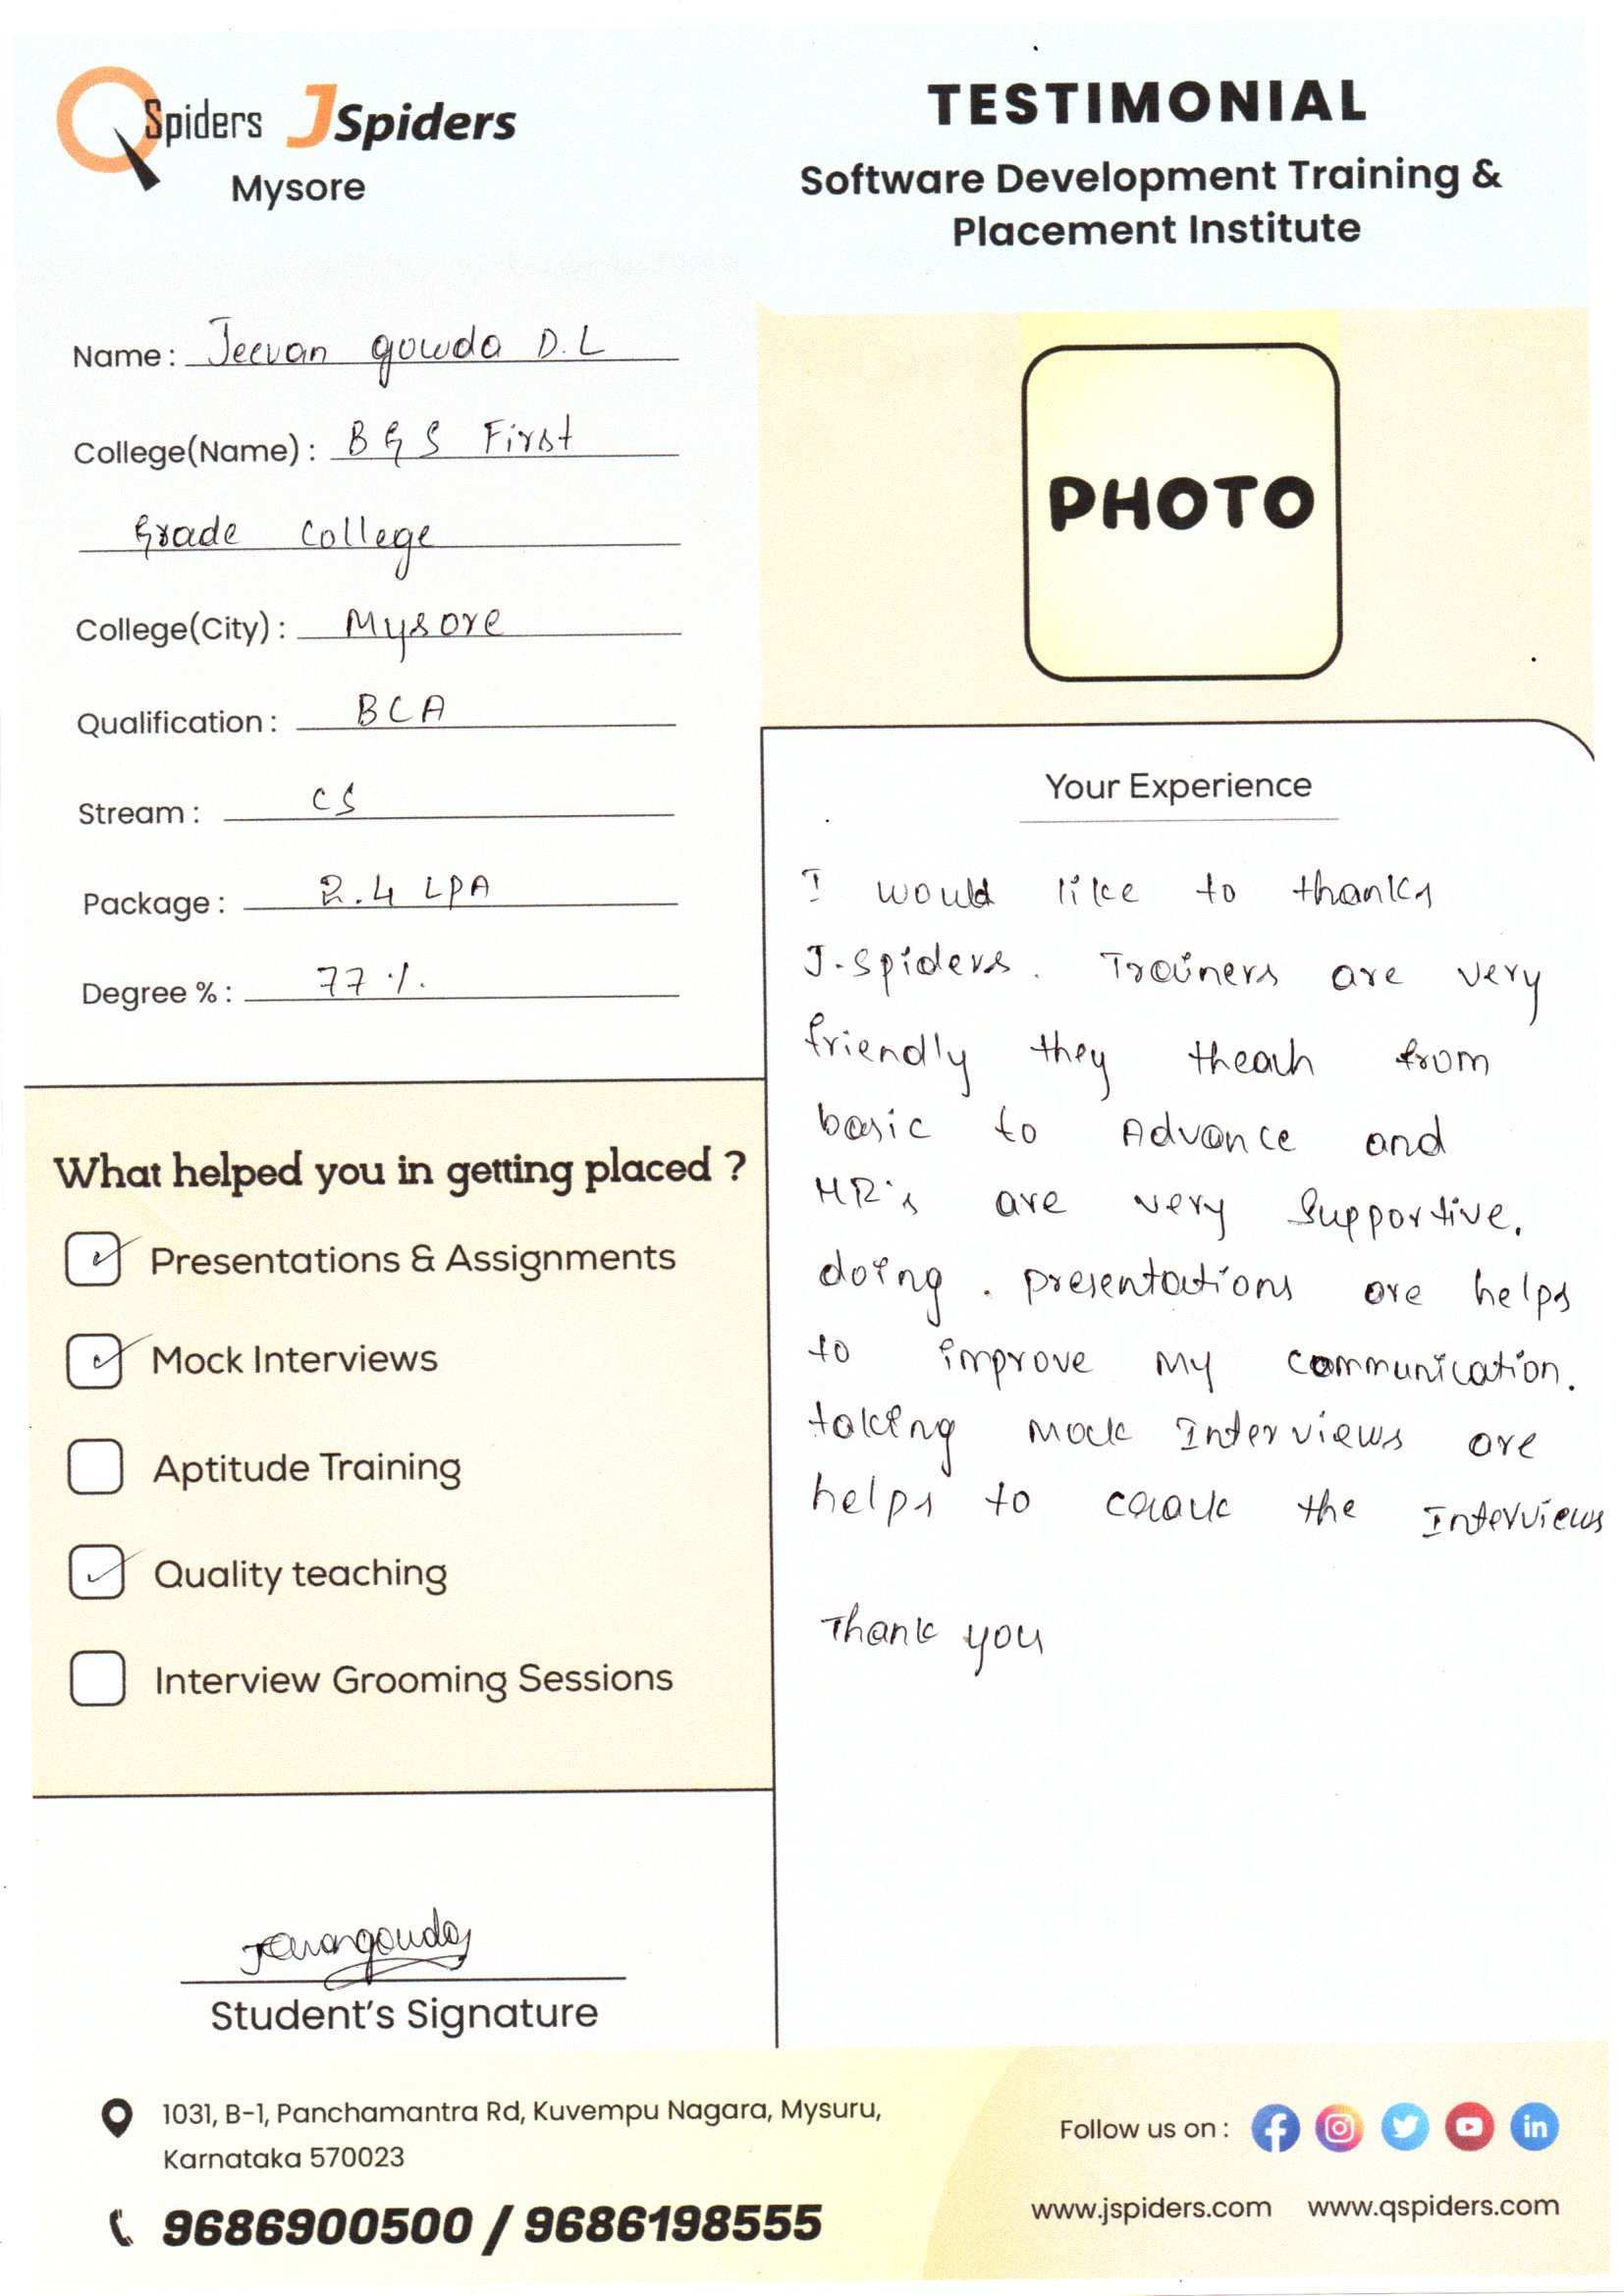 QSpiders JSpiders
Mysore
TESTIMONIAL
Software Development Training &
Placement Institute
Name : Jeevan gowda D.L
College(Name) : BGS First
Grade College
College(City) : Mysore
Qualification : BCA
Stream : CS
Package : 2.4 LPA
Degree % : 77 %.
What helped you in getting placed ?
Presentations & Assignments
Mock Interviews
Aptitude Training
Quality teaching
Interview Grooming Sessions
Jeevangowda
Student's Signature
PHOTO
Your Experience
I would like to thanks
J-Spiders. Trainers are very
friendly they theach from
basic to Advance and
HR's are very Supportive.
doing. presentations are helps
to improve My communication.
taking Mock Interviews are
helps to crack the Interviews
Thank you
1031, B-1, Panchamantra Rd, Kuvempu Nagara, Mysuru,
Karnataka 570023
9686900500 / 9686198555
Follow us on :
www.jspiders.com www.qspiders.com